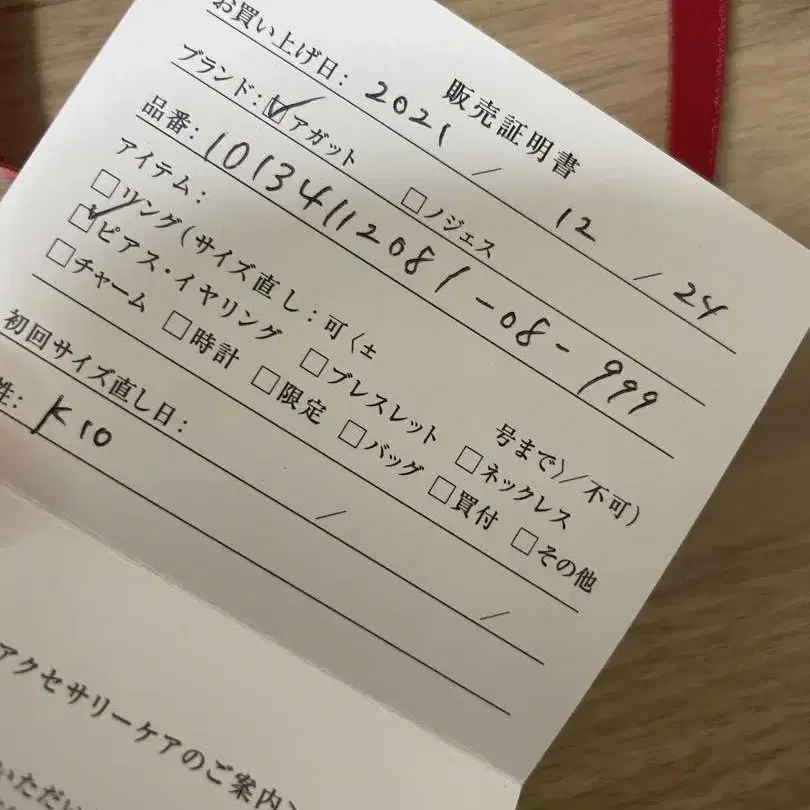 販売証明書
お買い上げ日: 2021 / 12 / 24
ブランド: ☑アガット □ノジェス
品番: 10134112081-08-999
アイテム:
□リング(サイズ直し:可〈± 号まで〉/不可)
☑ピアス・イヤリング □ブレスレット □ネックレス
□チャーム □時計 □限定 □バッグ □買付 □その他
初回サイズ直し日: / /
性: K10
アクセサリーケアのご案内
いただい